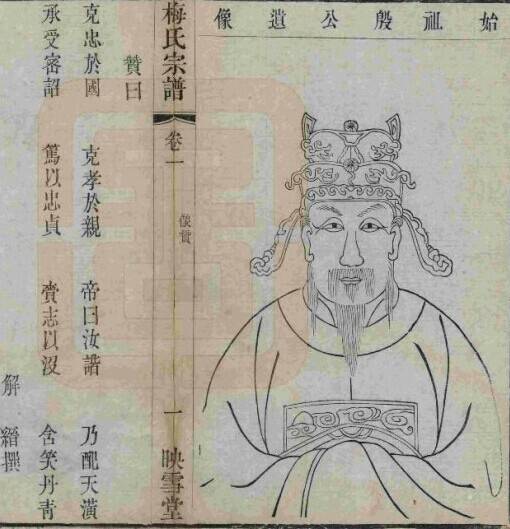 始祖殷公遺像
梅氏宗譜
卷一
像贊
一
映雪堂
贊曰
克忠於國 克孝於親 帝曰汝諧 乃配天潢
承受密詔 篤以忠貞 賫志以沒 含笑丹青
解縉撰